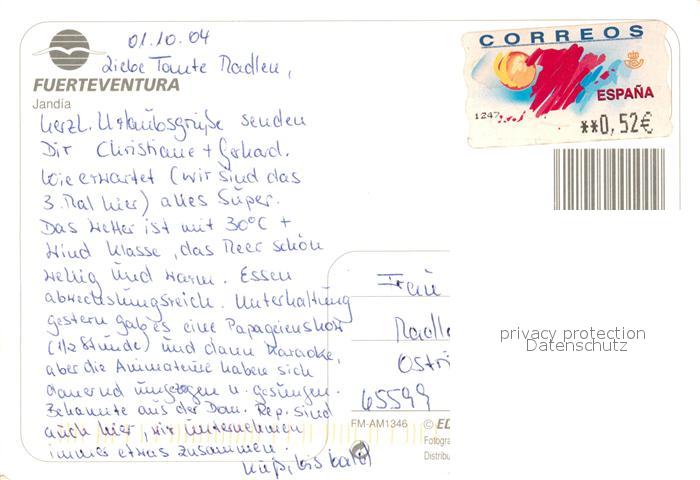 01.10.04
Liebe Tante Madlen,
FUERTEVENTURA
Jandía
herzl. Urlaubsgrüße senden
Dir Christiane + Gerhard.
Wie erwartet (wir sind das
3. Mal hier) alles Super.
Das Wetter ist mit 30°C +
Wind Klasse, das Meer schön
wellig und warm. Essen
abwechslungsreich. Unterhaltung
gestern gab es eine Papageienshow
(1/2 Stunde) und dann Karaoke,
aber die Animateure haben sich
dauernd umgezogen u. gesungen.
Bekannte aus der Dom. Rep. sind
auch hier, wir unternehmen
immer etwas zusammen.
bis bald
CORREOS
ESPAÑA
1247
**0,52€
Frau
Madle
Ostri
65599
privacy protection
Datenschutz
FM-AM1346
© ED
Fotogra
Distribu